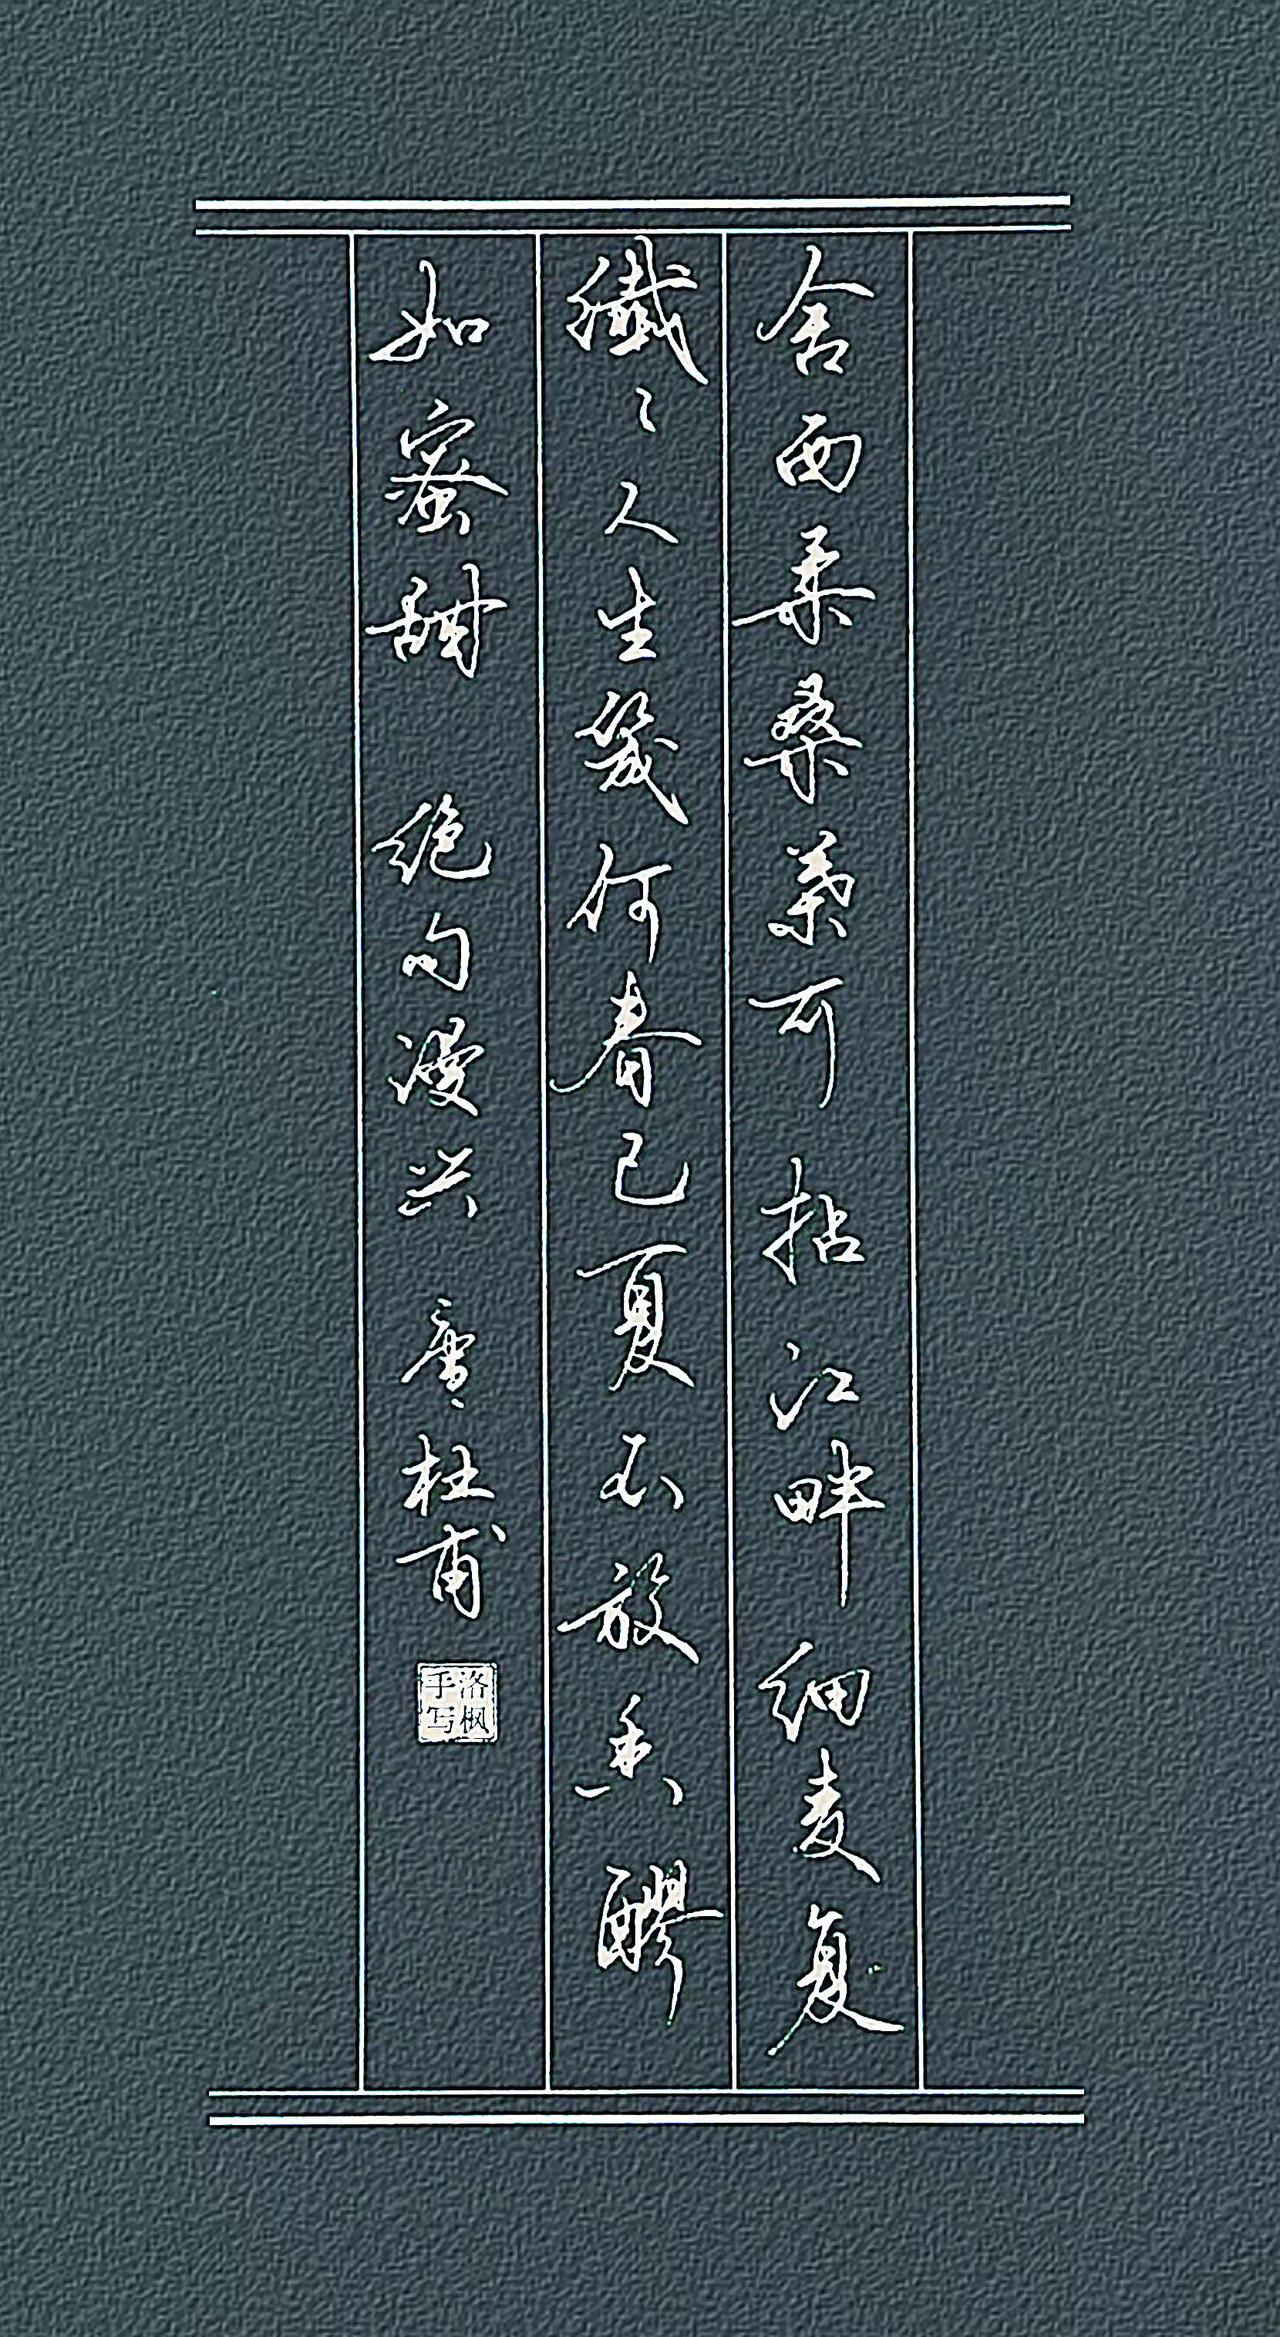 舍西柔桑葉可拈江畔细麦复
纖々人生幾何春已夏不放香醪
如蜜甜 绝句漫兴 唐杜甫
洛枫手写